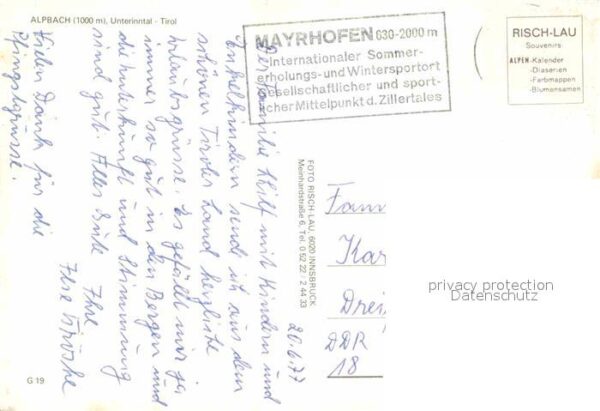 ALPBACH (1000 m), Unterinntal - Tirol
MAYRHOFEN 630-2000 m
Internationaler Sommer-
erholungs- und Wintersportort
Gesellschaftlicher und sport-
licher Mittelpunkt d. Zillertales
RISCH-LAU
Souvenirs
ALPEN-Kalender
-Diaserien
-Farbmappen
-Blumensamen
20.6.77
Familie mit Kindern und
Enkelkindern sende ich aus dem
schönen Tiroler Land herzliche
Urlaubsgrüsse. Es gefällt mir ja
immer so gut in den Bergen und
die Unterkunft und Stimmung
sind gut. Alles Gute Ihre
Ilse
Vielen Dank für die
Pfingstgrüsse.
FOTO RISCH-LAU, 6020 INNSBRUCK
Meinhardstraße 6, Tel. 0 52 22 / 2 44 33
Fam
Kar
Drei
DDR
18
privacy protection
Datenschutz
G 19